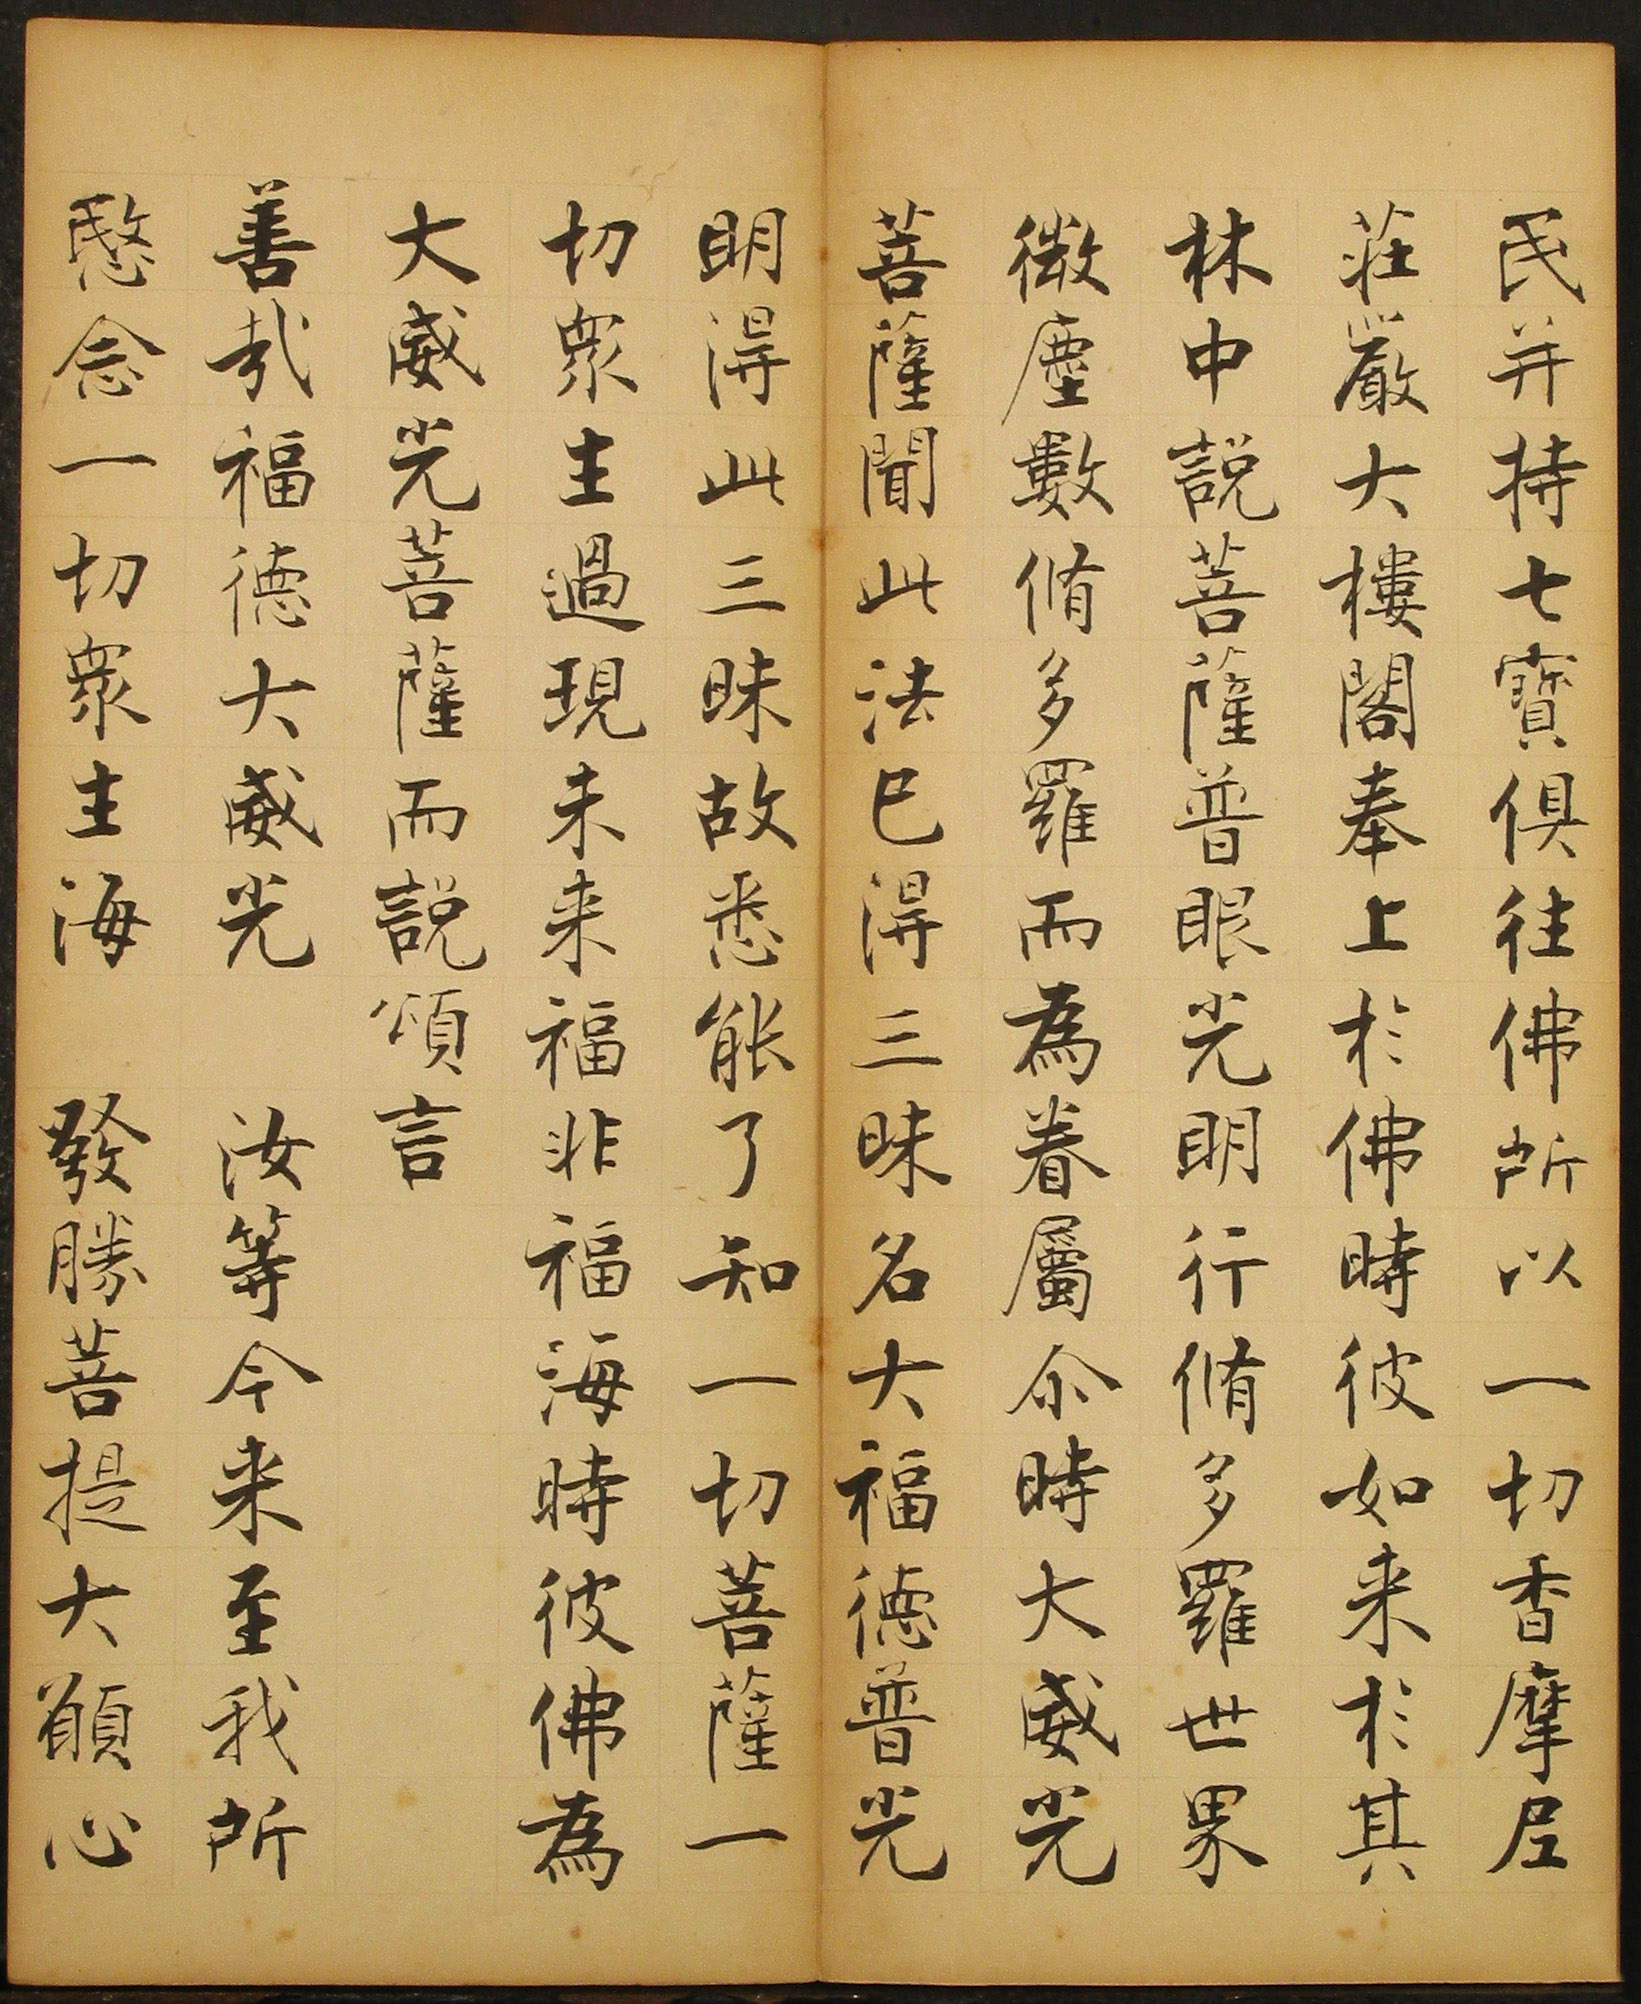 民并持七寶俱往佛所以一切香摩尼
莊嚴大樓閣奉上於佛時彼如来於其
林中說菩薩普眼光明行脩多羅世界
微塵數脩多羅而為眷屬尒時大威光
菩薩聞此法已得三昧名大福德普光
明得此三昧故悉能了知一切菩薩一
切衆生過現未来福非福海時彼佛為
大威光菩薩而說頌言
善哉福德大威光　汝等今来至我所
愍念一切衆生海　發勝菩提大願心